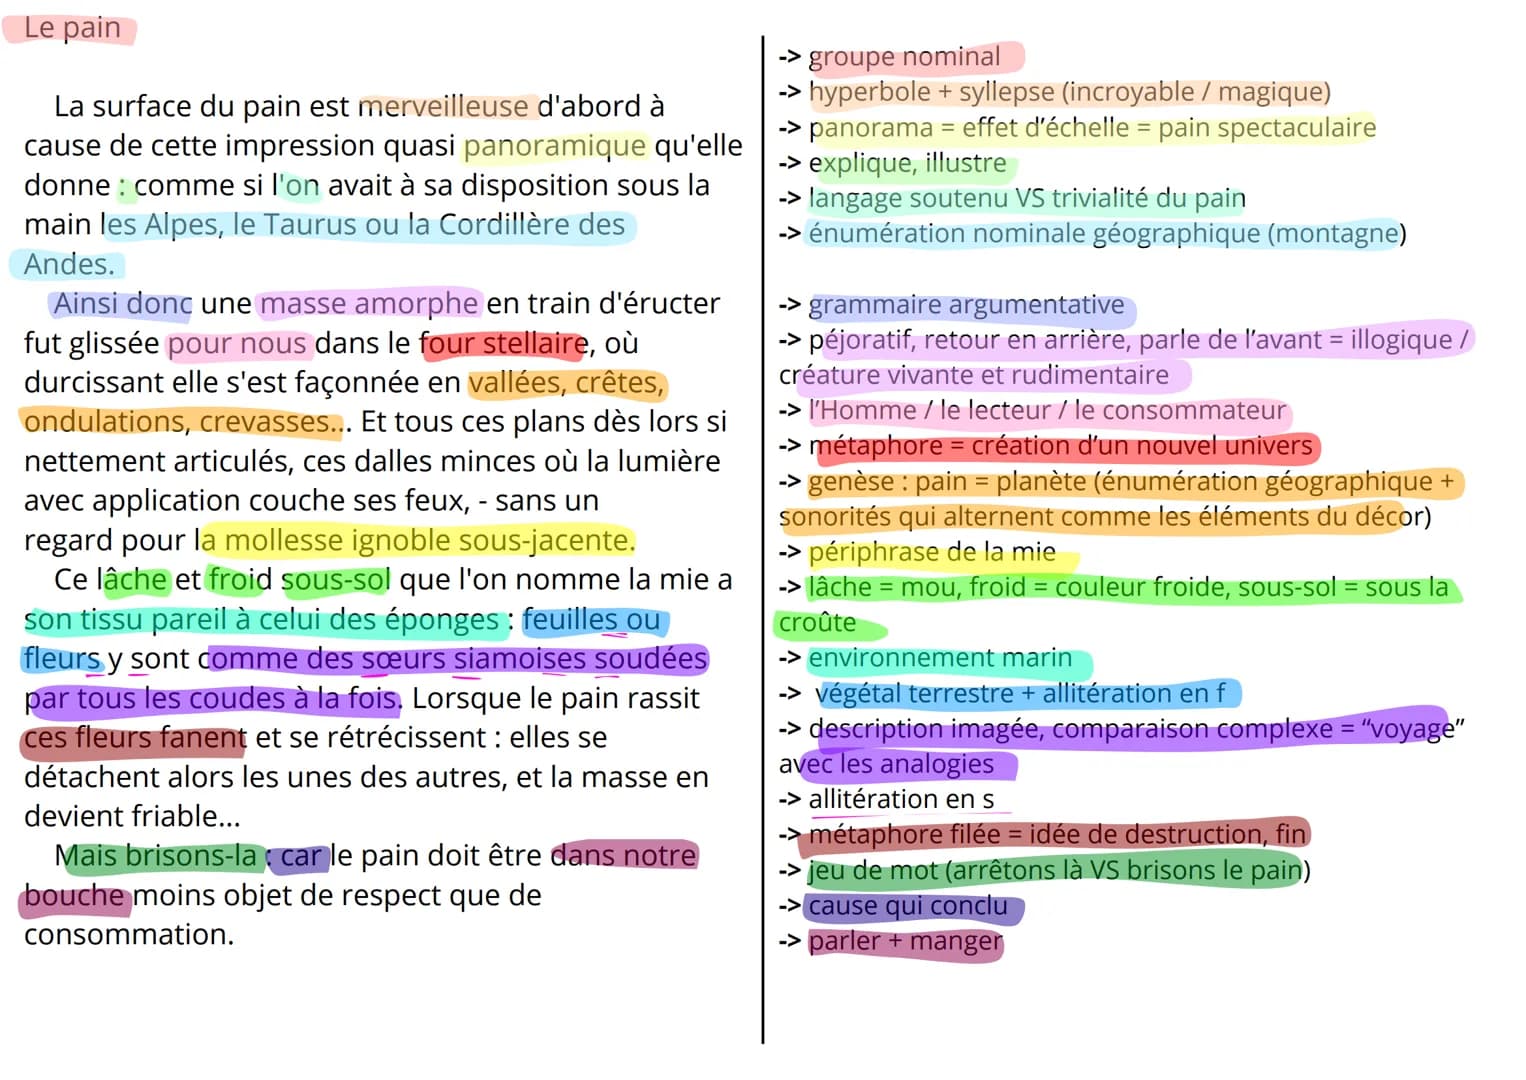 Le pain
La surface du pain est merveilleuse d'abord à
cause de cette impression quasi panoramique qu'elle
donne : comme si l'on avait à sa disposition sous la
main les Alpes, le Taurus ou la Cordillère des
Andes.
Ainsi donc une masse amorphe en train d'éructer
fut glissée pour nous dans le four stellaire, où
durcissant elle s'est façonnée en vallées, crêtes,
ondulations, crevasses... Et tous ces plans dès lors si
nettement articulés, ces dalles minces où la lumière
avec application couche ses feux, - sans un
regard pour la mollesse ignoble sous-jacente.
Ce lâche et froid sous-sol que l'on nomme la mie a
son tissu pareil à celui des éponges : feuilles ou
fleurs y sont comme des sœurs siamoises soudées
par tous les coudes à la fois. Lorsque le pain rassit
ces fleurs fanent et se rétrécissent : elles se
détachent alors les unes des autres, et la masse en
devient friable...
Mais brisons-la : car le pain doit être dans notre
bouche moins objet de respect que de
consommation.
-> groupe nominal
-> hyperbole + syllepse (incroyable / magique)
-> panorama = effet d’échelle = pain spectaculaire
-> explique, illustre
-> langage soutenu VS trivialité du pain
-> énumération nominale géographique (montagne)
-> grammaire argumentative
-> péjoratif, retour en arrière, parle de l’avant = illogique /
créature vivante et rudimentaire
-> l’Homme / le lecteur / le consommateur
-> métaphore = création d’un nouvel univers
-> genèse : pain = planète (énumération géographique +
sonorités qui alternent comme les éléments du décor)
-> périphrase de la mie
-> lâche = mou, froid = couleur froide, sous-sol = sous la
croûte
-> environnement marin
-> végétal terrestre + allitération en f
-> description imagée, comparaison complexe = “voyage”
avec les analogies
-> allitération en s
-> métaphore filée = idée de destruction, fin
-> jeu de mot (arrêtons là VS brisons le pain)
-> cause qui conclu
-> parler + manger